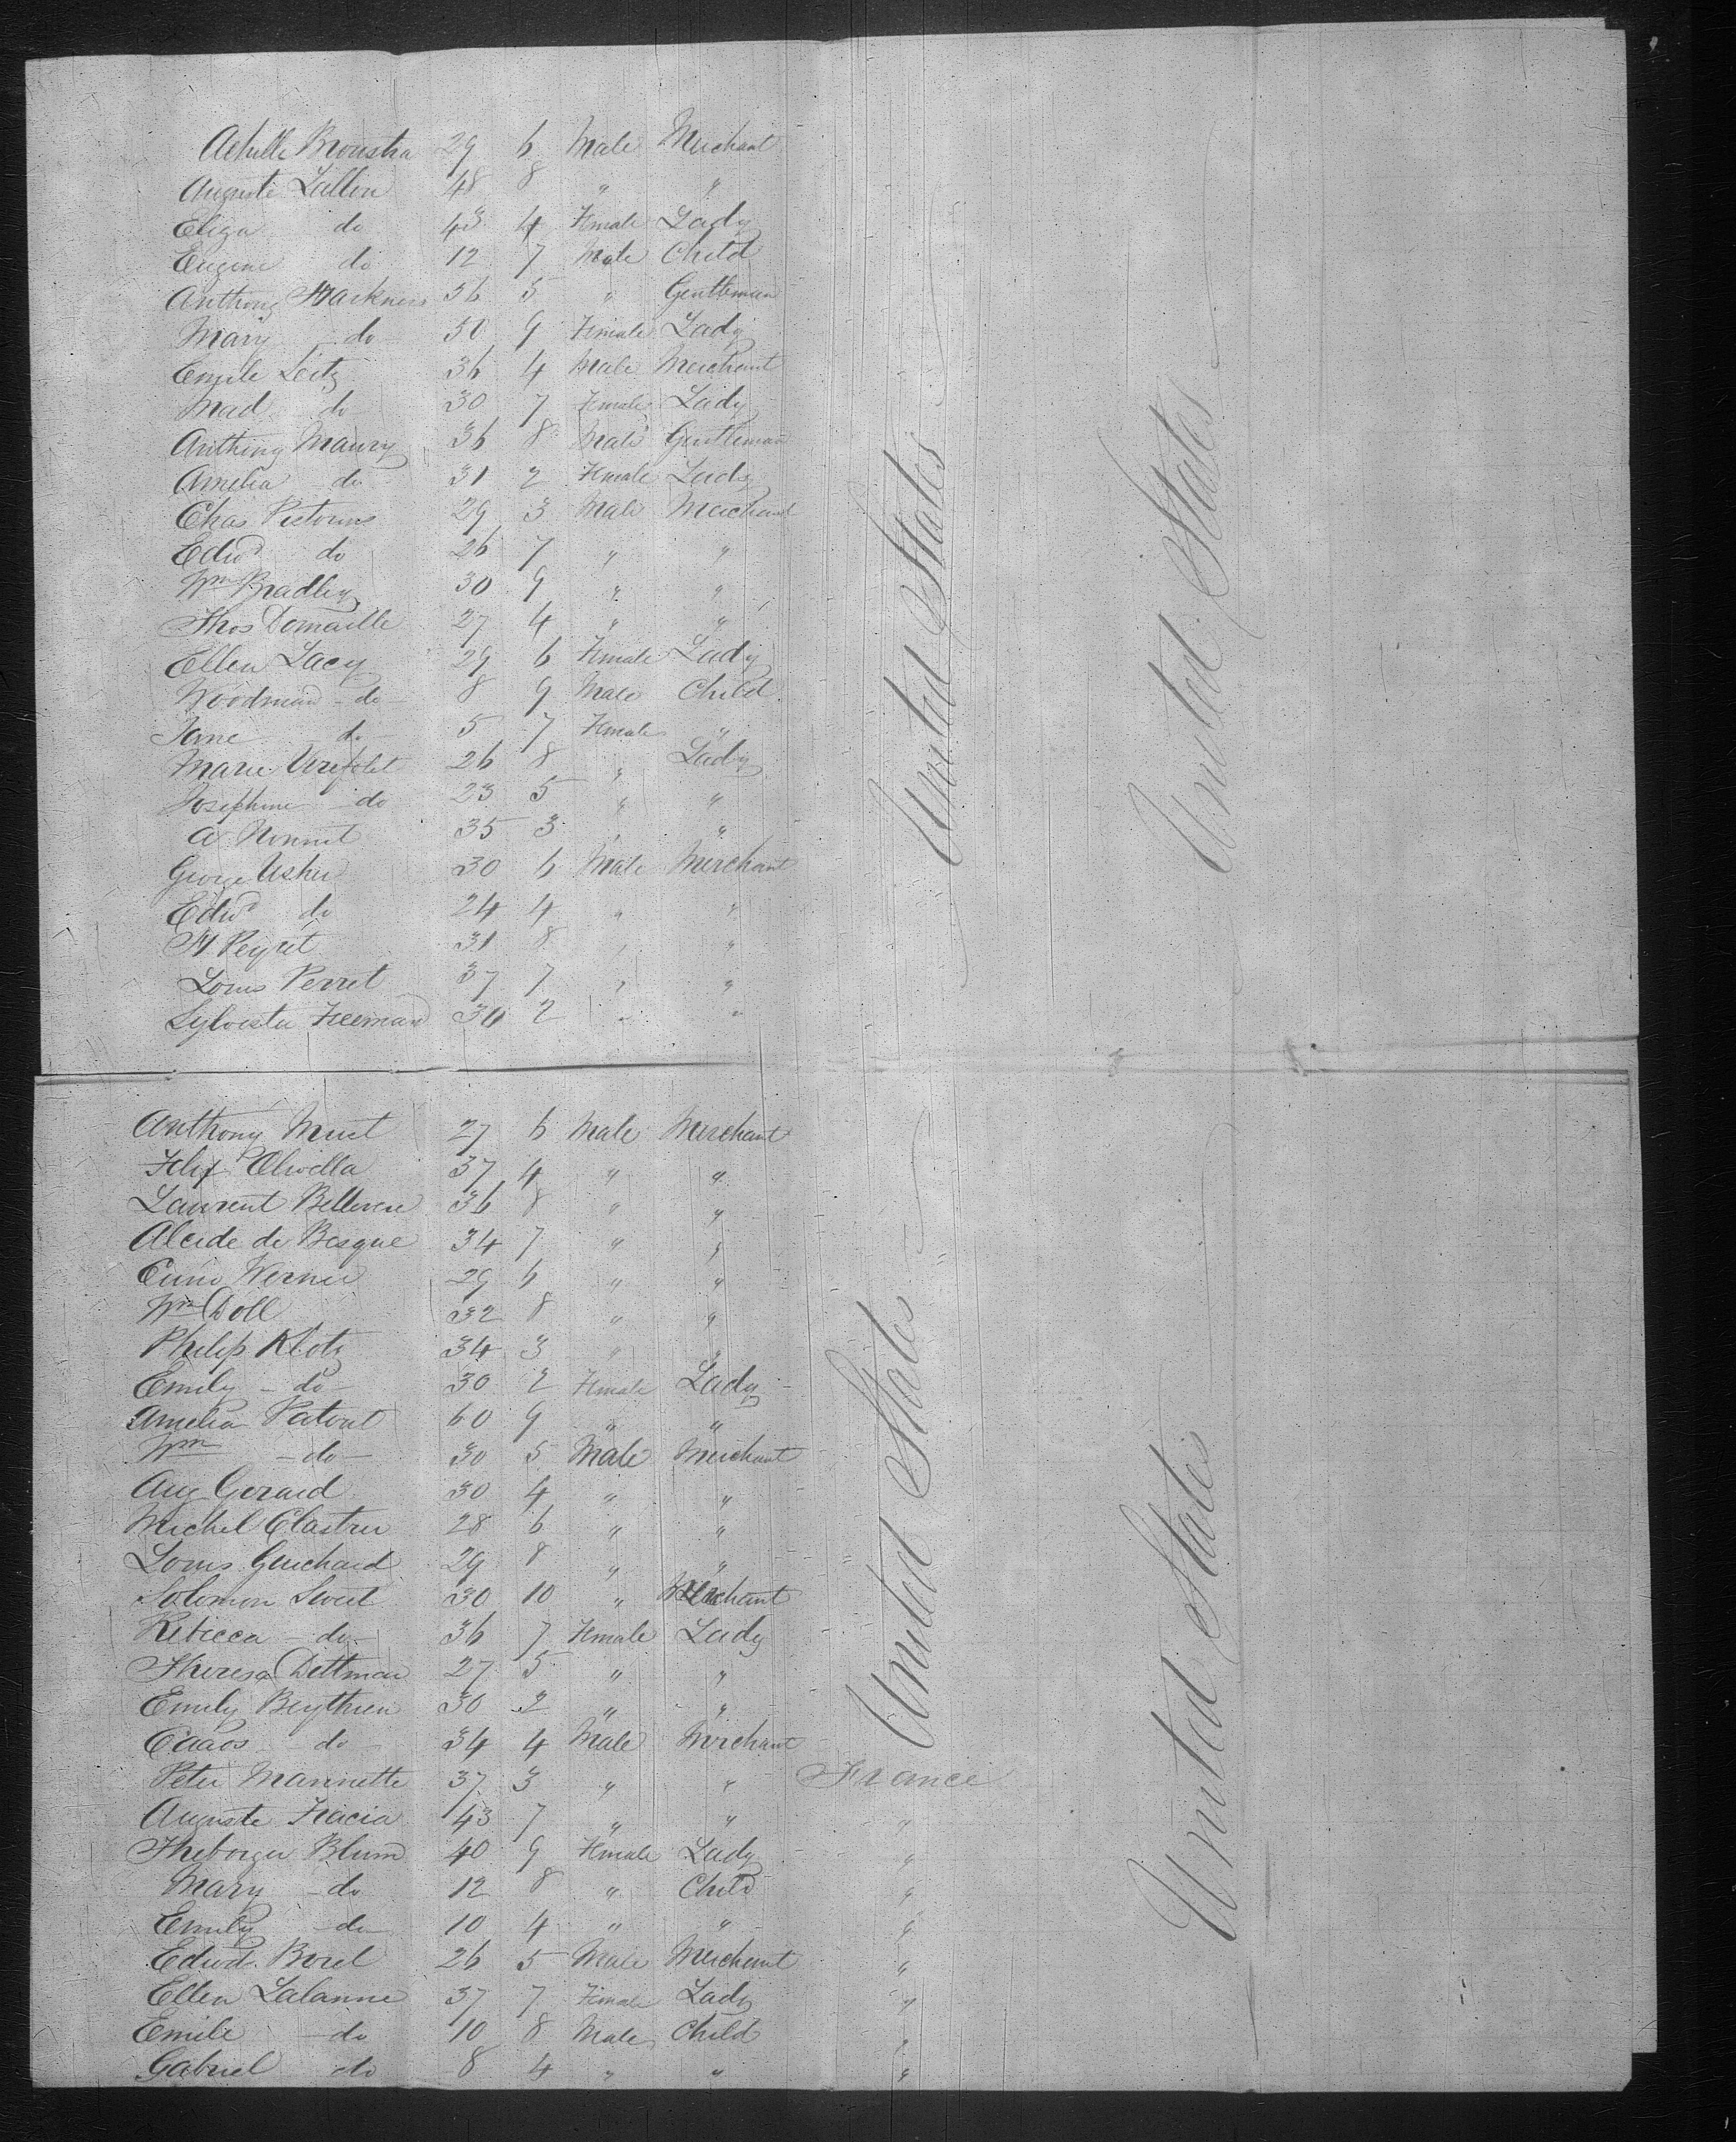 Achille Broustra 29 6 Male Merchant
Auguste Lallou 48 8 " "
Eliza do 43 4 Female Lady
Eugene do 12 7 Male Child
Anthony Harkness 36 5 " Gentleman
Mary do 50 9 Female Lady
Emile Seitz 36 4 Male Merchant
Mad do 30 7 Female Lady
Anthony Maury 36 8 Male Gentleman
Amelia do 31 2 Female Lady
Chas 29 3 Male Merchant
Edwd do 26 7 " "
Wm Bradley 30 9 " "
Thos Domaille 27 4 " "
Ellen Lacy 29 6 Female Lady
Woodman do 8 9 Male Child
Jane do 5 7 Female "
Marie 26 8 " Lady
Josephine do 23 5 " "
A 35 3 " "
George Usher 30 6 Male Merchant
Edwd do 24 4 " "
H Peyret 31 8 " "
Louis Perret 37 7 " "
Sylvester Freeman 34 2 " "
United States
United States
Anthony Muit 27 6 Male Merchant
Felix P Olivella 37 4 " "
Laurent Bellevue 36 8 " "
Alcide de Besque 34 7 " "
Cuno Werner 29 6 " "
Wm Doll 32 8 " "
Philip Klotz 34 3 " "
Emily do 30 2 Female Lady
Amelia Patout 60 9 " "
Wm do 30 5 Male Merchant
Aug Gerard 30 4 " "
Michel Clastrer 28 6 " "
Louis Guichard 29 8 " "
Solomon Sweet 30 10 " Merchant
Rebecca do 36 7 Female Lady
Theresa Dittman 27 5 " "
Emily Beythien 30 2 " "
do 34 4 Male Merchant
Peter Mannette 37 3 " " France
Auguste 43 7 " " "
Blum 40 9 Female Lady "
Mary do 12 8 " Child "
Emily do 10 4 " " "
Edwd Borel 26 5 Male Merchant "
Ellen Lalanne 37 7 Female Lady "
Emile do 10 8 Male Child "
Gabriel do 8 4 " " "
United States
United States